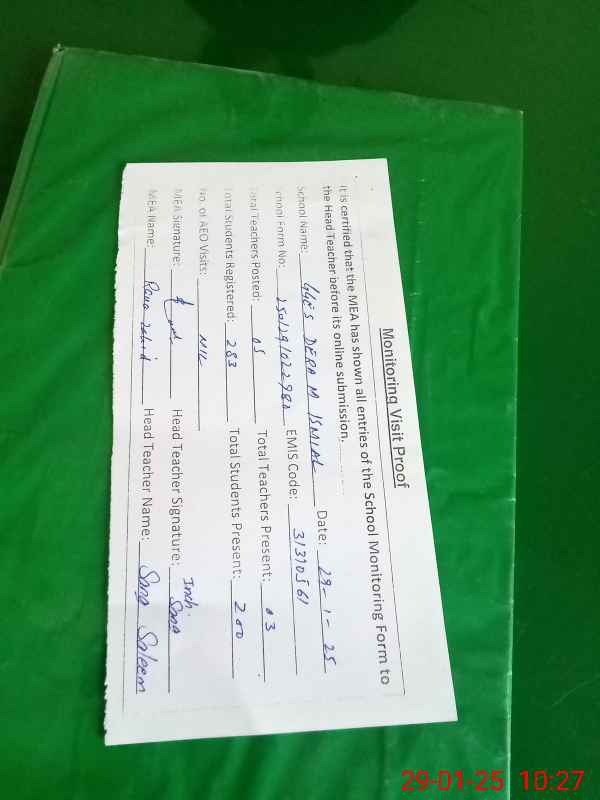 Monitoring Visit Proof
It is certified that the MEA has shown all entries of the School Monitoring Form to
the Head Teacher before its online submission.
School Name: GGES DERA M ISMIAL Date: 29-1-25
School Form No: 2501291022980 EMIS Code: 31310561
Total Teachers Posted: 05 Total Teachers Present: 03
Total Students Registered: 283 Total Students Present: 200
No. of AEO Visits: NIL
MEA Signature: Head Teacher Signature: Inch. Sana
MEA Name: Rana Zahid Head Teacher Name: Sana Saleem
29-01-25 10:27